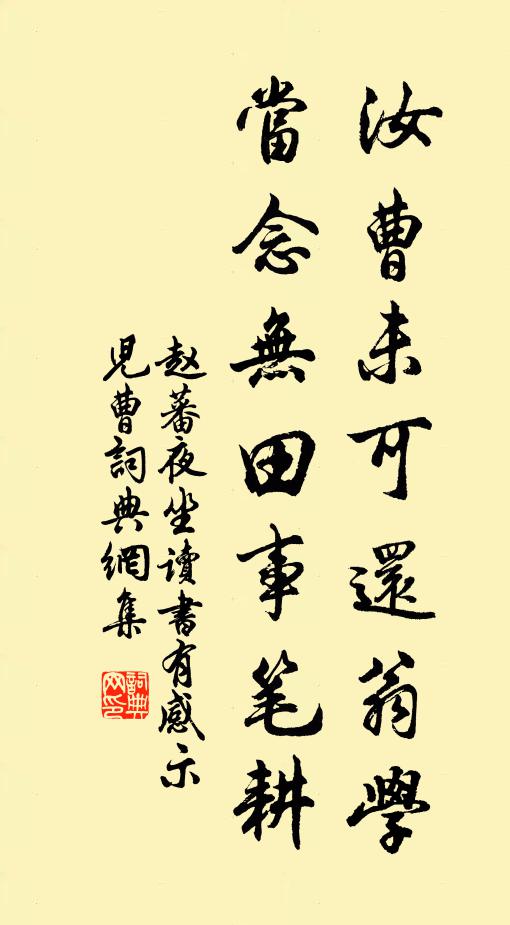 汝曹未可還翁學
當念無田事笔耕
赵蕃夜坐讀書有感示
児曹詞典網集
詞典
网印